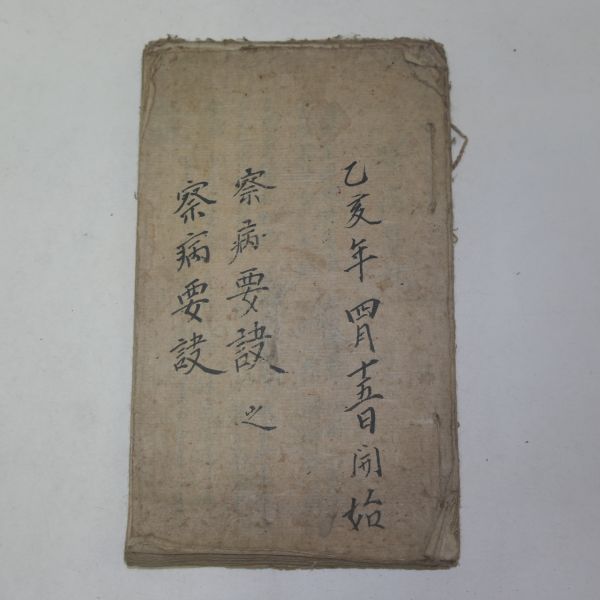 乙亥年四月十五日開始
察病要訣之
察病要訣